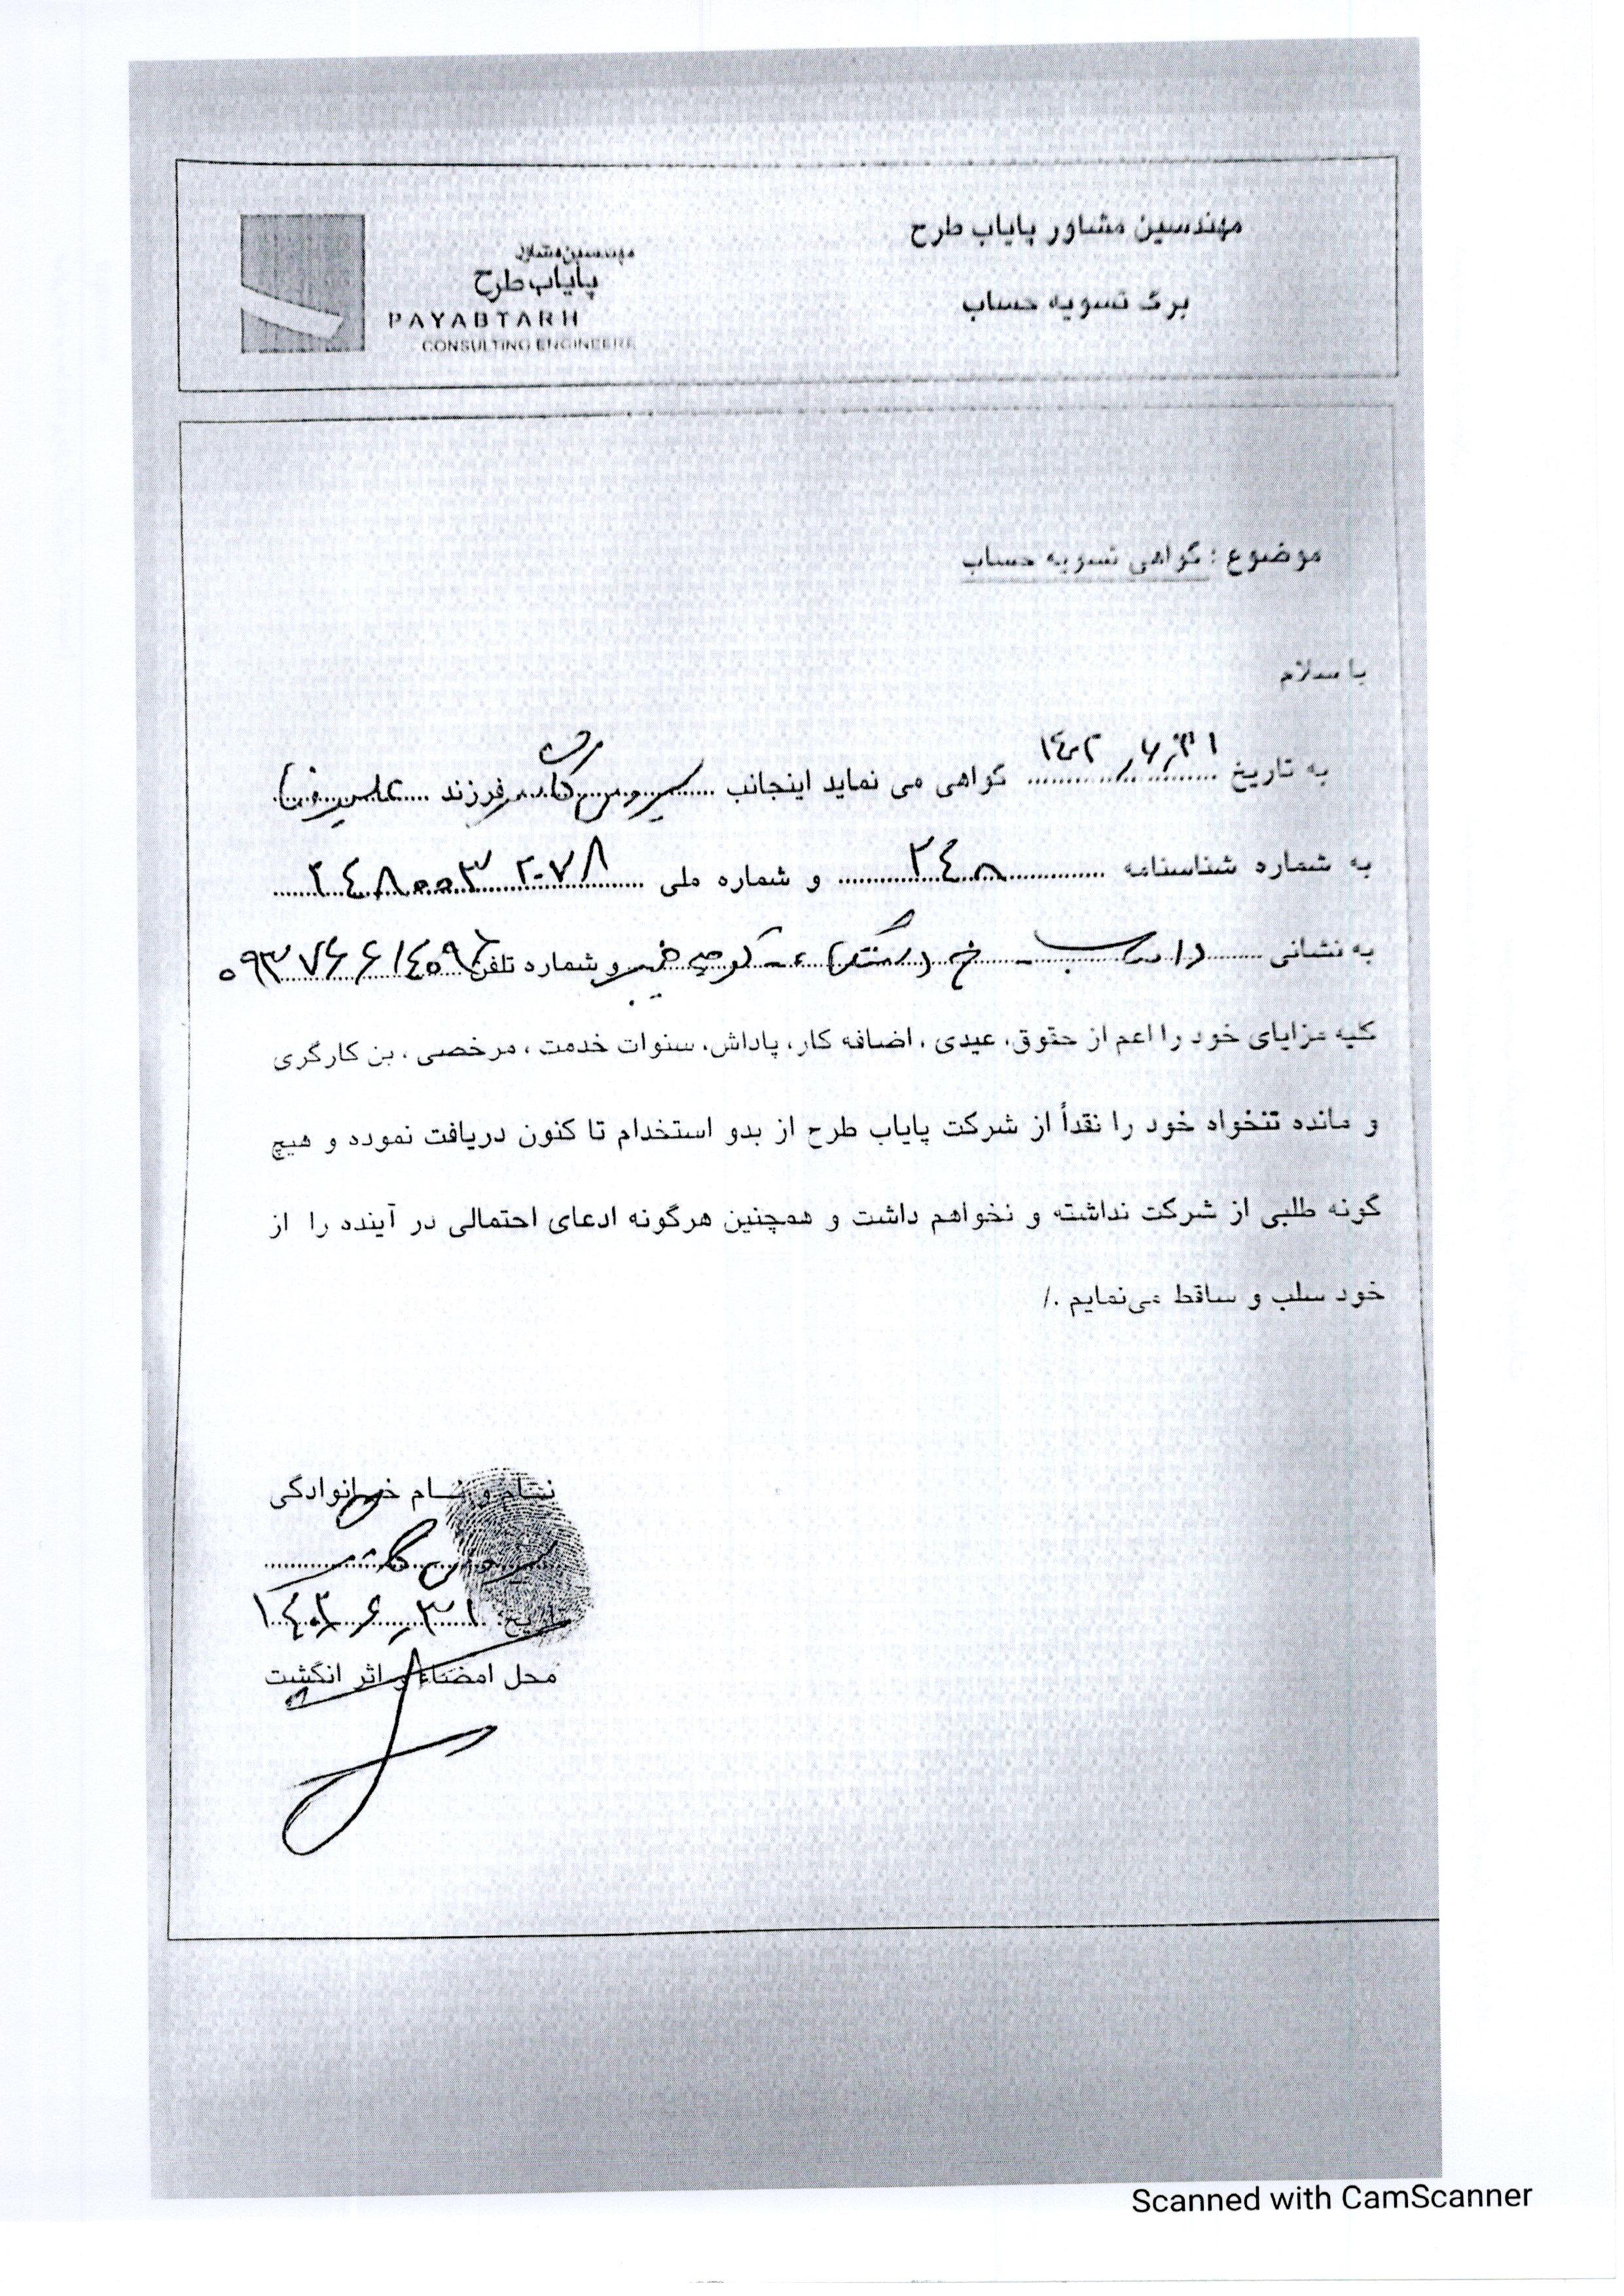 مهندسین مشاور پایاب طرح
برگ تسویه حساب
مهندسین مشاور
پایاب طرح
PAYABTARH
CONSULTING ENGINEERS
موضوع : گواهی تسویه حساب
با سلام
به تاریخ ۱۴۰۲٫۶٫۳۱ گواهی می نماید اینجانب سیروس فرزند علیرضا
به شماره شناسنامه ۲۴۸ و شماره ملی ۲۴۸۰۰۳۲۰۷۸
به نشانی داراب - خ - کوچه و شماره تلفن ۰۹۳۷۶۶۱۴۰۹۶
کلیه مزایای خود را اعم از حقوق، عیدی، اضافه کار، پاداش، سنوات خدمت، مرخصی، بن کارگری
و مانده تنخواه خود را نقداً از شرکت پایاب طرح از بدو استخدام تا کنون دریافت نموده و هیچ
گونه طلبی از شرکت نداشته و نخواهم داشت و همچنین هرگونه ادعای احتمالی در آینده را از
خود سلب و ساقط می‌نمایم ./
نام و نام خانوادگی
سیروس
تاریخ: ۱۴۰۲٫۶٫۳۱
محل امضاء و اثر انگشت
Scanned with CamScanner